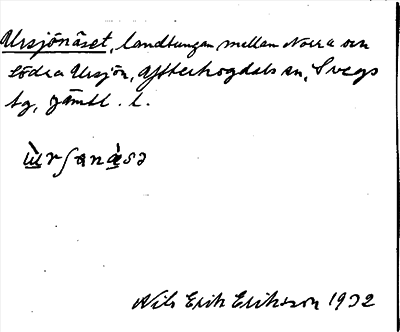 Ursjönäset, landtungan mellan Norra och
södra Ursjön, Ytterhogdals sn, Svegs
tg, Jämtl. l.
ùrʃɑnæ̀sə
Nils Erik Eriksson 1932